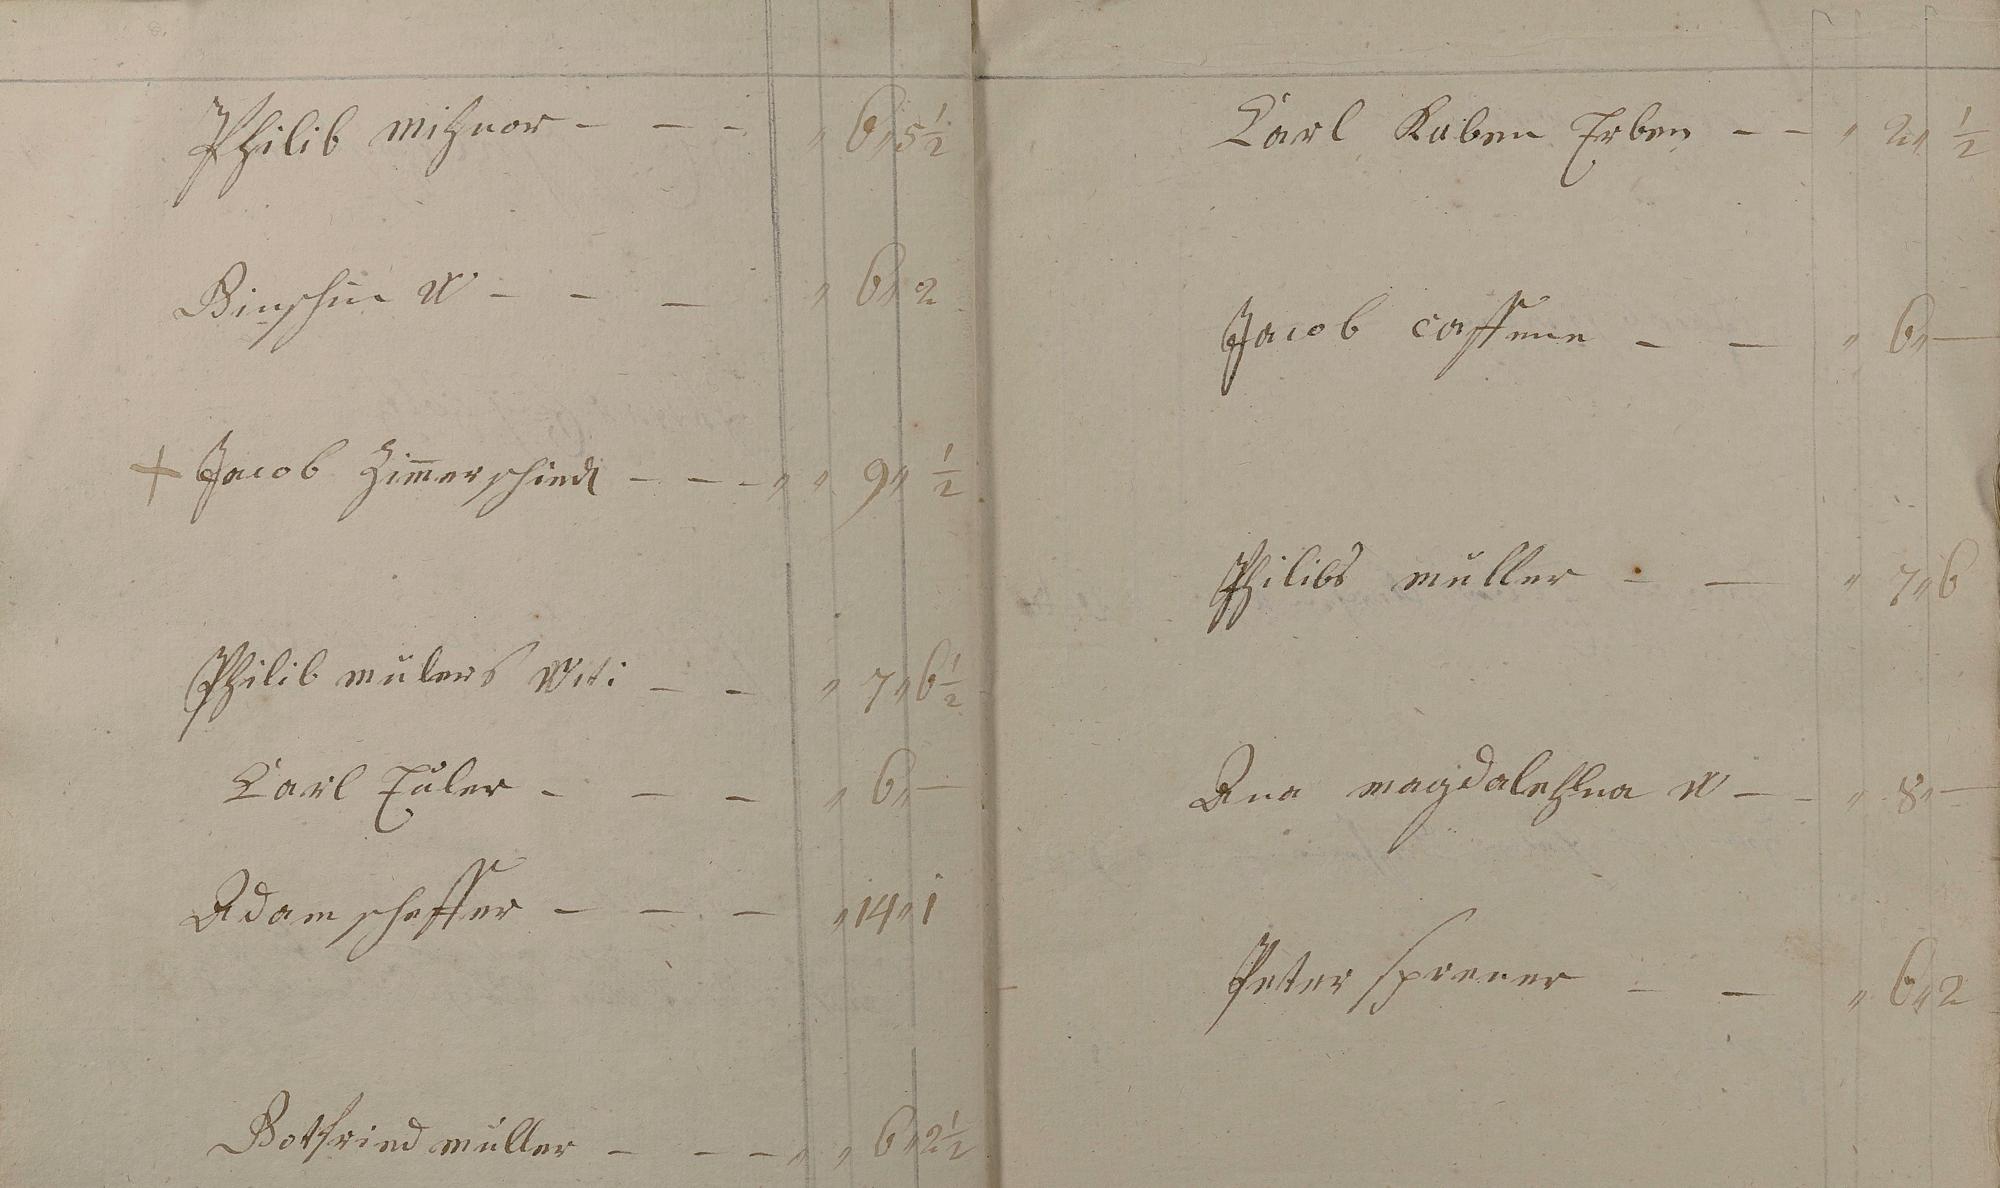 Philib mitzner - - - " 6 " 5 1/2
W - - - " 6 " 2
+ Jacob Zimmerschied - - - " " 9 " 1/2
Philib mülers Wti - - " 7 " 6 1/2
Carl Euler - - - " 6 " -
Adam scheffer - - - " 14 " 1
Gotfried müller - - - " " 6 " 2 1/2
Carl Kuben Erben - - " 2 " 1/2
Jacob - - " 6 " -
Philibs müller - - " 7 " 6
Ana magdalehna W - - " 8 " -
Peter sprener - - " 6 " 2